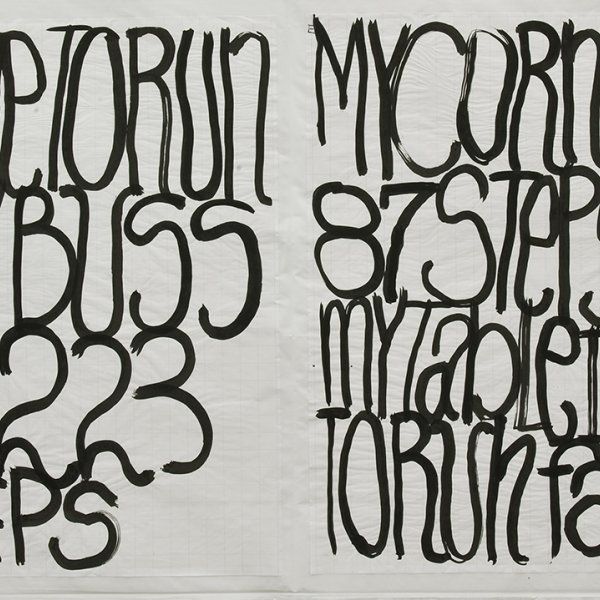 P.TORUN
YBUSS
223
EPS
MYCORN
87STePS
mYTabLeT
TORUnfa